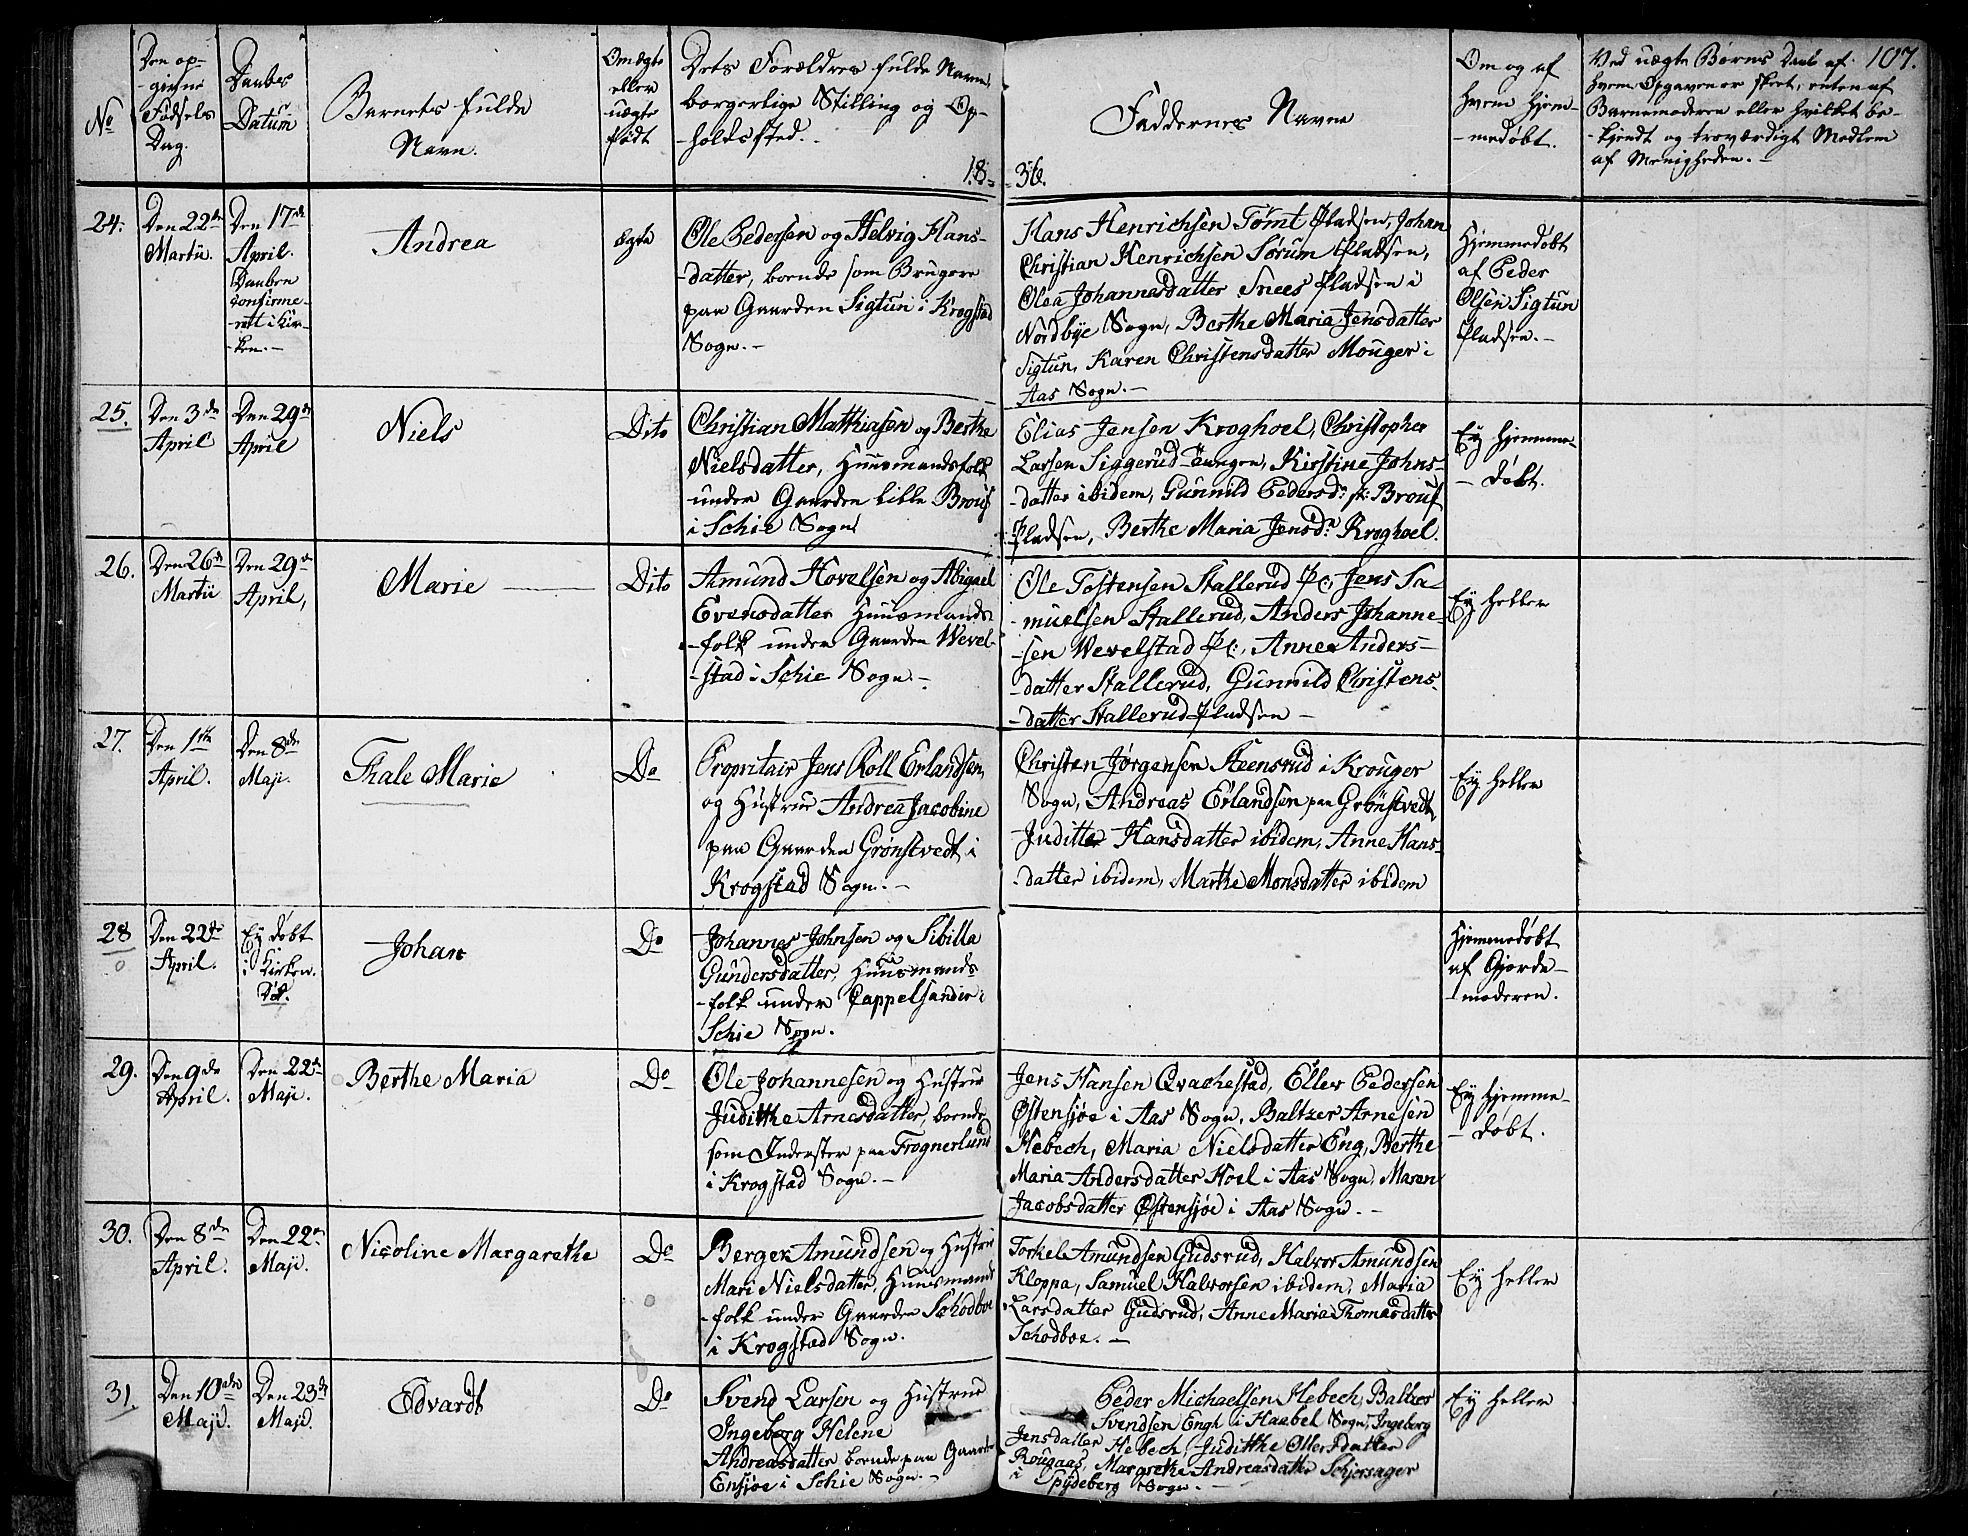 107.
No
Den op-
-givne
Fødsels
Dag.
Daabes
Datum
Barnets fulde
Navn.
Om ægte
eller
uægte
født
Dets Forældres fulde Navne,
borgerlige Stilling og Op-
-holdssted.
18-
-36.
Faddernes Navne
Om og af
hvem hjem-
-medøbt.
Ved uægte Børns Daab af
hvem Opgaven er skeet, enten af
Barnemoderen eller hvilket be-
-kjendt og troværdigt Medlem
af Menigheden.-
24.
Den 22de
Martii.
Den 17de
April.
Daaben
confirme-
-ret i Kir-
-ken.-
Andrea
ægte
Ole Pedersen og Helvig Hans-
-datter, boende som Brugere
paa Gaarden Sigtun i Krogstad
Sogn.-
Hans Henrichsen Tømt Pladsen, Johan
Christian Henrichsen Sørum Pladsen,
Olea Johannesdatter Snees Pladsen i
Nordbye Sogn, Berthe Maria Jensdatter
Sigtun, Karen Christensdatter Mouger i
Aas Sogn.-
Hjemmedøbt
af Peder
Olsen Sigtun
Pladsen.-
25.
Den 3de
April
Den 29de
April
Niels
Dito
Christian Matthiasen og Berthe
Nielsdatter, Huusmandsfolk
under Gaarden Lille Brous
i Schie Sogn
Elias Jensen Kroghoel, Christopher
Larsen Siggerud-Eungen, Kirstine Johns-
-datter ibidem, Gunnild Pedersdr. Brous
Pladsen, Berthe Maria Jensdr. Kroghoel.
Ey hjemme-
- døbt.
26.
Den 26de
Martii
Den 29de
April,
Marie
Dito
Amund Hovelsen og Abigael
Evensdatter Huusmands-
-folk under Gaarden Wevel-
-stad i Schie Sogn.-
Ole Tostensen Stallerud Pl:, Jens Sa-
-muelsen Stallerud, Anders Johanne-
-sen Wevelstad Pl:, Anne Anders-
-datter Stallerud, Gunnild Christens-
-datter Stallerud Pladsen -
Ey heller
27.
Den 1ste
April.
Den 8de
Maji.
Thale Marie
Do
Propritair Jens Koll Erlandsen,
og Hustrue Andrea Jacobine
paa Gaarden Grønstvedt i
Krogstad Sogn.-
Christen Jørgensen Steensrud i Krouger
Sogn, Andreas Erlandsen paa Grønstvedt,
Juditte Hansdatter ibidem, Anne Hans-
-datter ibidem, Marthe Monsdatter ibidem
Ey heller
28
Den 22de
April.
Ey døbt
i Kirken.
Død.
Johan
Do
Johannes Johnsen og Sibilla
Gundersdatter, Huusmands-
-folk under Cappelsandie i
Schie Sogn.
Hjemmedøbt
af Gjorde-
-moderen.
29.
Den 9de
April.
Den 22de
Maji.
Berthe Maria
Do
Ole Johannesen og Hustrue
Juditthe Arnesdatter, boende
som Inderster paa Frognerlund
i Krogstad Sogn.-
Jens Hansen Qvachestad, Eller Pedersen
Østensjøe i Aas Sogn, Baltzer Arnesen
Hebech, Maria Nielsdatter Eng, Berthe
Maria Andersdatter Hoel i Aas Sogn, Maren
Jacobsdatter Østensjøe i Aas Sogn.-
Ey hjemme-
- døbt.
30.
Den 8de
April.
Den 22de
Maji.
Nicoline Margarethe
Do
Berger Amundsen og Hustru
Mari Nielsdatter, Huusmands-
-folk under Gaarden Schodboe
i Krogstad Sogn.
Torkel Amundsen Gudsrud, Halvor Amundsen
Kloppa, Samuel Halvorsen ibidem, Maria
Larsdatter Gudsrud, Anne Maria Thomasdatter
Schodboe.-
Ey heller
31.
Den 10de
Maji.
Den 23de
Maji.
Edvardt
Do
Svend Larsen og Hustrue
Ingeborg Helene
Andreasdatter boende paa Gaarden
Ensjøe i Schie Sogn.-
Peder Michaelsen Hebech, Baltzer
Svendsen Engh i Haabel Sogn, Ingeborg
Jensdatter Hebech, Juditthe Ollersdatter
Rougaas, Margrethe Andreasdatter Schjersager
i Spydeberg Sogn.-
Ey heller